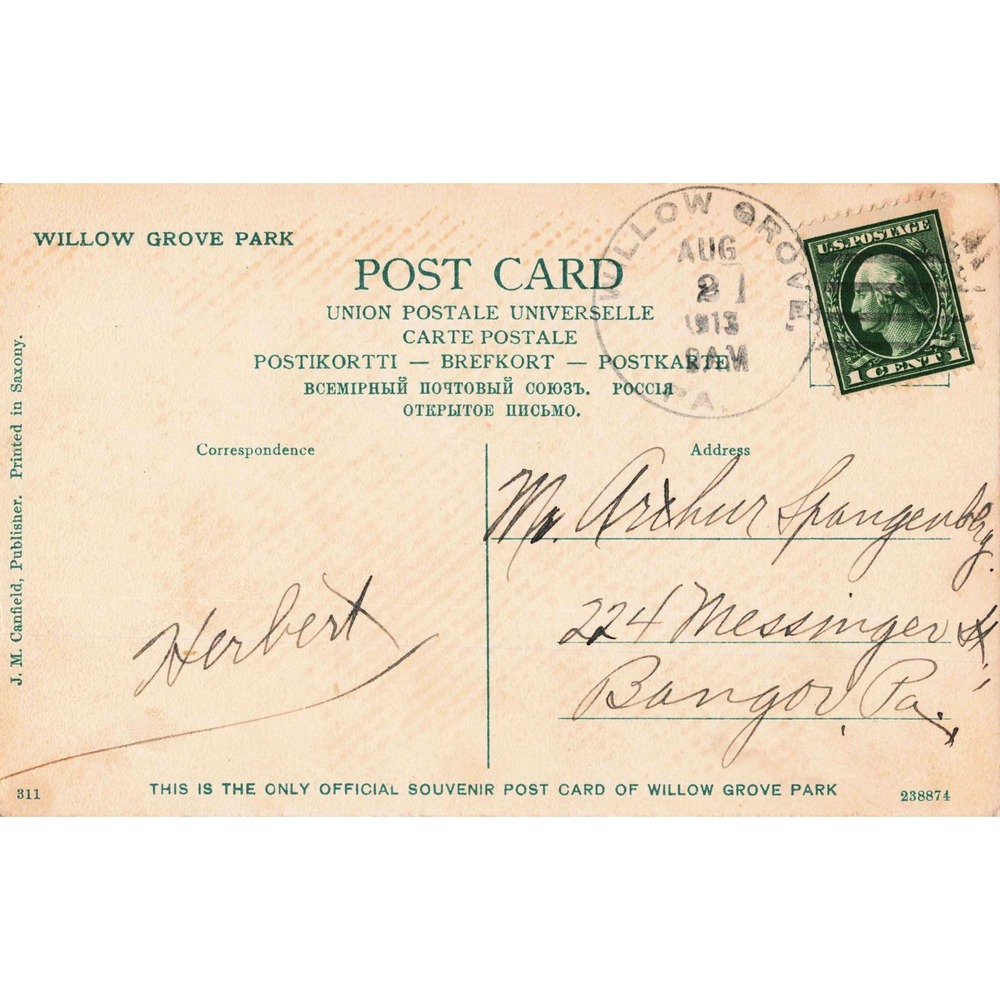 WILLOW GROVE PARK
POST CARD
UNION POSTALE UNIVERSELLE
CARTE POSTALE
POSTIKORTTI — BREFKORT — POSTKARTE
ВСЕМІРНЫЙ ПОЧТОВЫЙ СОЮЗЪ. РОССІЯ
ОТКРЫТОЕ ПИСЬМО.
WILLOW GROVE,
AUG
21
1913
PA.
U.S. POSTAGE
1 CENT 1
J. M. Canfield, Publisher. Printed in Saxony.
Correspondence
Herbert
Address
Mr. Arthur Spangenberg.
224 Messinger St.,
Bangor, Pa.
311
THIS IS THE ONLY OFFICIAL SOUVENIR POST CARD OF WILLOW GROVE PARK
238874